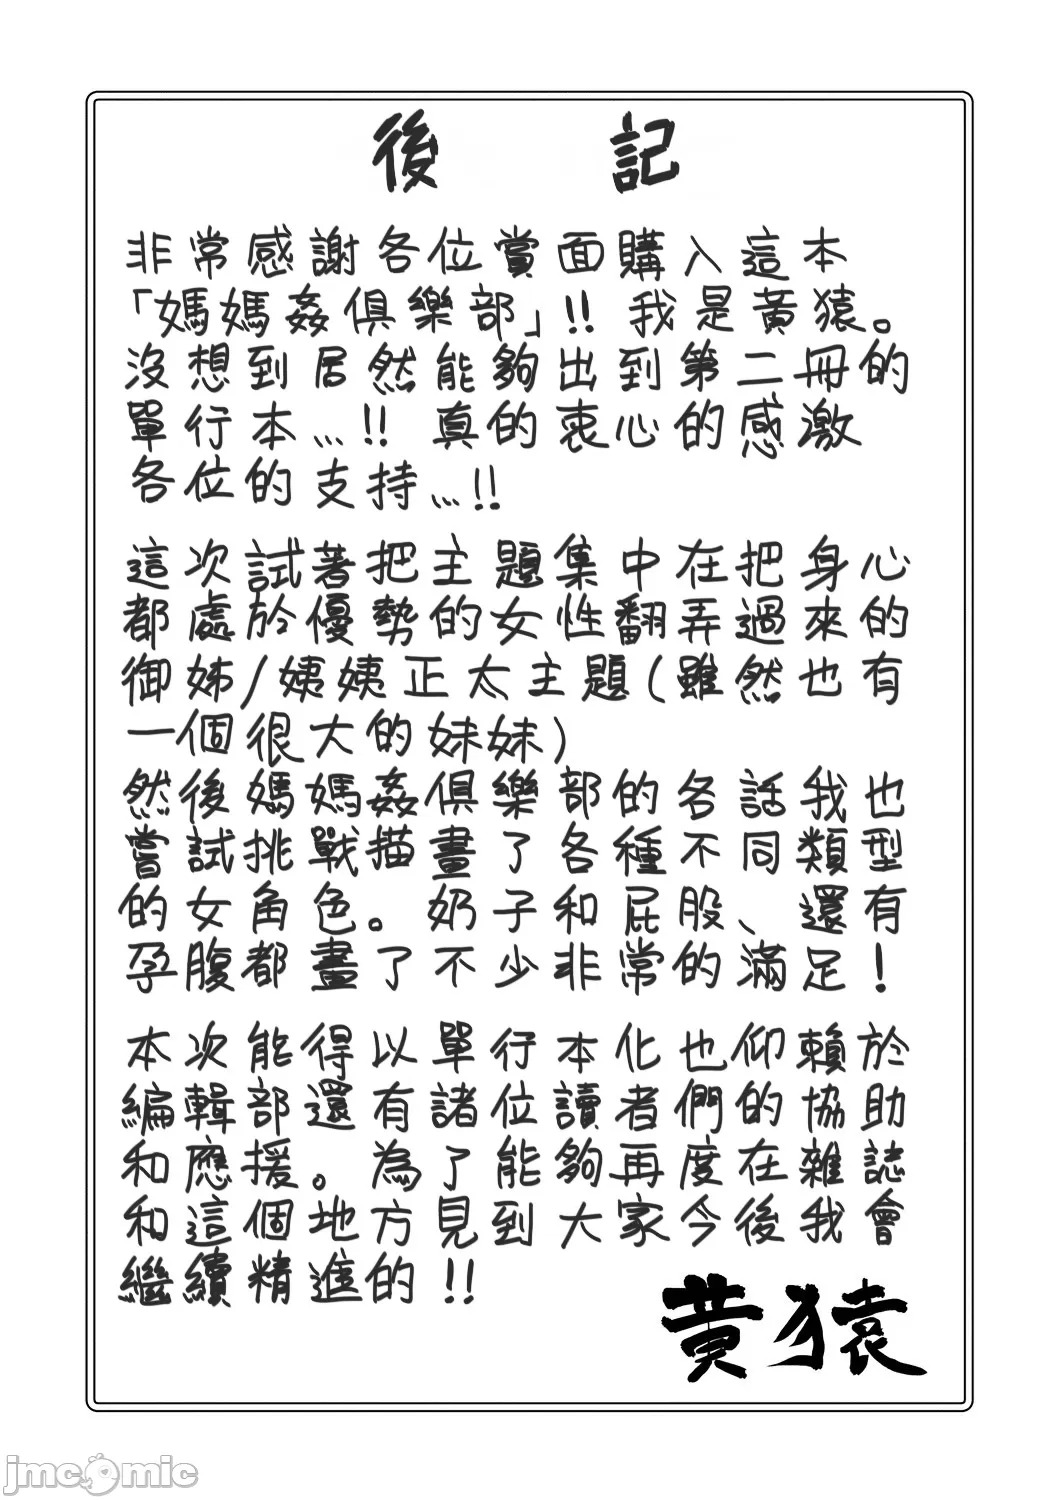 後記
非常感謝各位賞面購入這本
「媽媽姦俱樂部」!! 我是黃猿。
沒想到居然能夠出到第二冊的
單行本...!! 真的衷心的感激
各位的支持...!!
這次試著把主題集中在把身心
都處於優勢的女性翻弄過來的
御姊/姨姨正太主題(雖然也有
一個很大的妹妹)
然後媽媽姦俱樂部的各話我也
嘗試挑戰描畫了各種不同類型
的女角色。奶子和屁股、還有
孕腹都畫了不少非常的滿足!
本次能得以單行本化也仰賴於
編輯部還有諸位讀者們的協助
和應援。為了能夠再度在雜誌
和這個地方見到大家今後我會
繼續精進的!!
黃猿
jmcomic